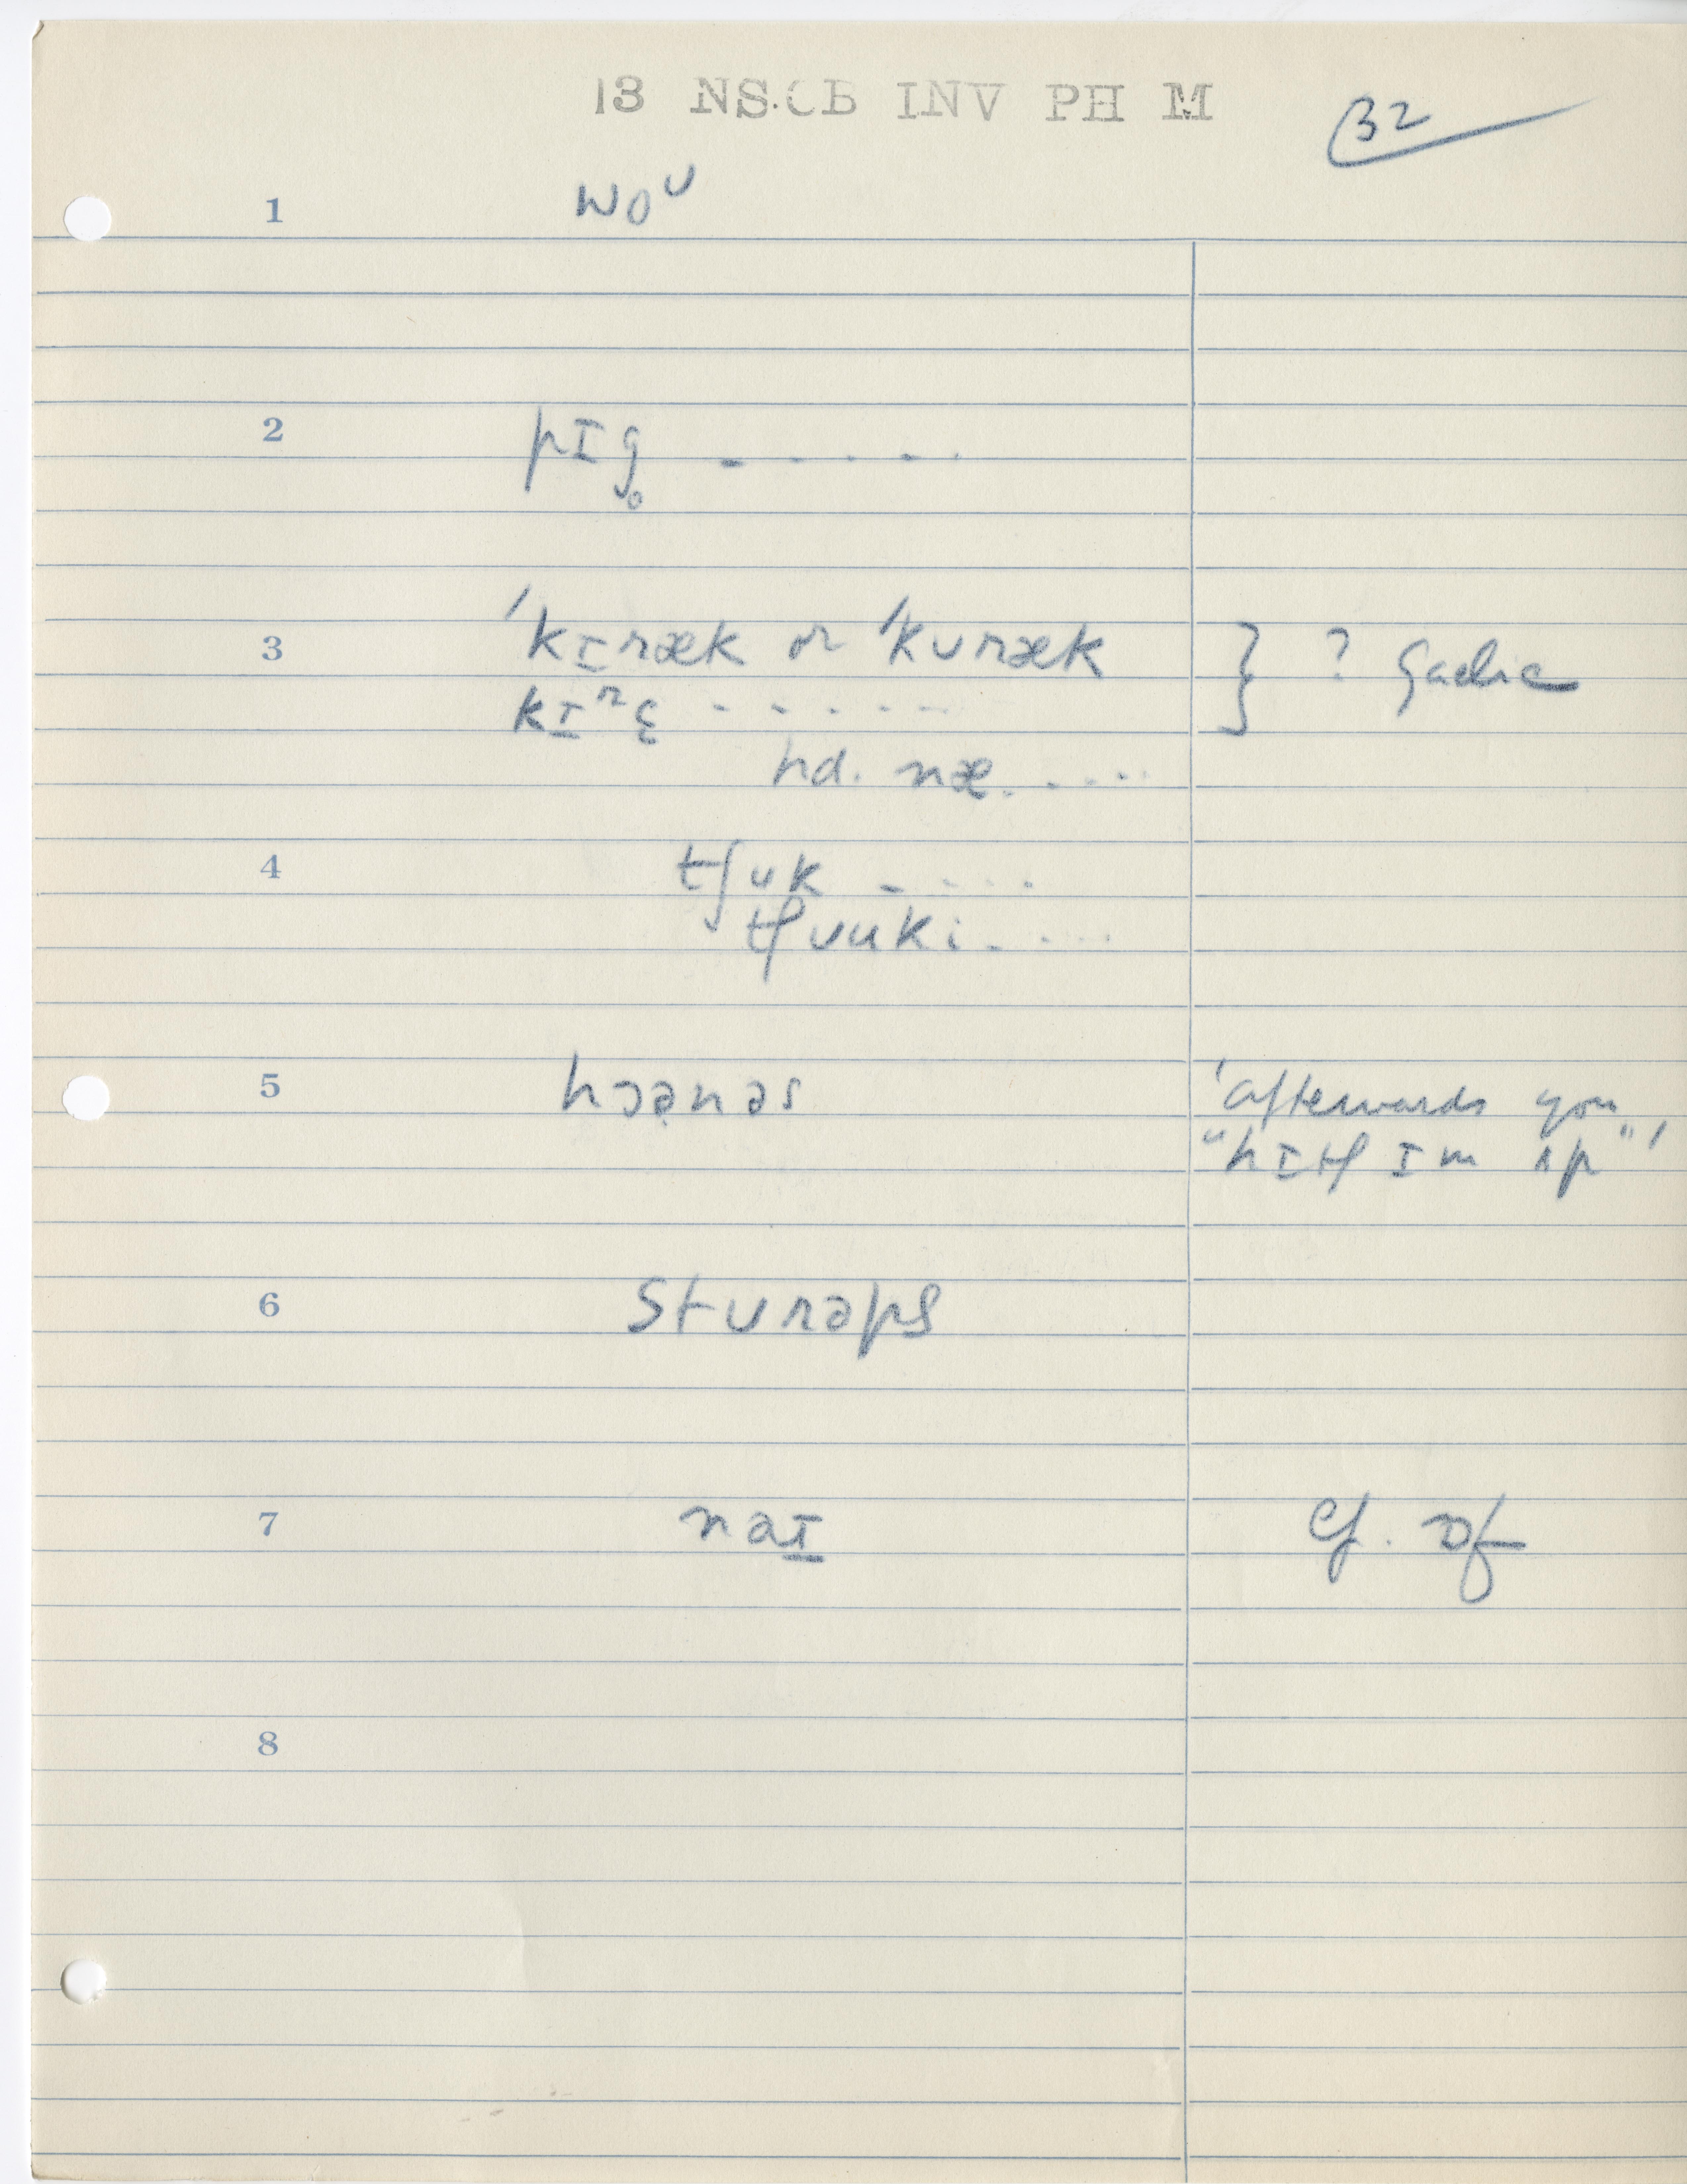 13 NS.CB INV PH M
32
1 woᴜ
2 pɪg̥ - - - - -
3 'kɪræk or 'kᴜræk } ? Gaelic
kɪʳɛ - - - - -
hd. næ - - - -
4 tʃᴜk - - - -
tʃᴜuki - - - -
5 hɔənəs 'afterwards you
"hɪtʃ ɪm ʌp"'
6 stᴜrəps
7 naɪ cf. ɒf
8